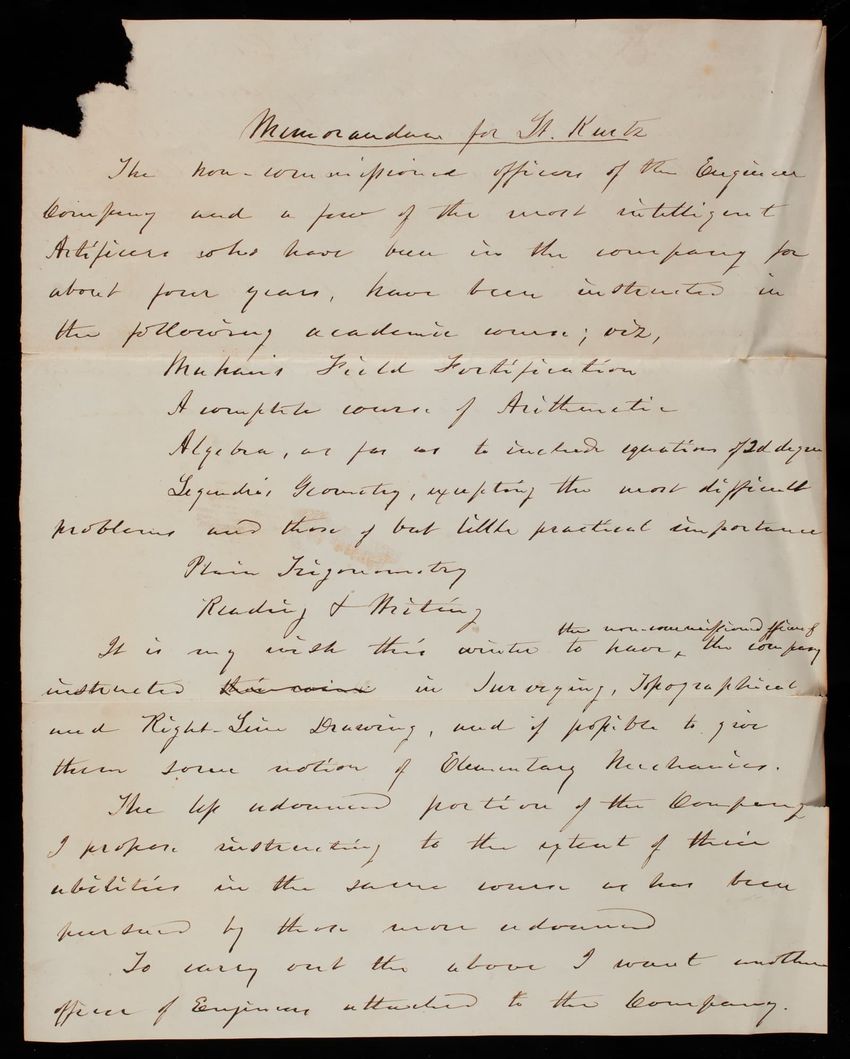 Memorandum for Lt. Kurtz
The non-commissioned officers of the Engineer
Company and a few of the most intelligent
Artificers who have been in the company for
about four years, have been instructed in
the following academic course; viz,
Mahan's Field Fortification
A complete course of Arithmetic
Algebra, as far as to include equations of 2d degree
Legendre's Geometry, excepting the most difficult
problems and those of but little practical importance
Plain Trigonometry
Reading & Writing
the non-commissioned officers of
It is my wish this winter to have ‸ the company
instructed in Surveying, Topographical
and Right-Line Drawing, and if possible to give
them some notion of Elementary Mechanics.
The less advanced portion of the Company
I propose instructing to the extent of their
abilities in the same course as has been
pursued by those more advanced
To carry out the above I want another
officer of Engineers attached to the Company.